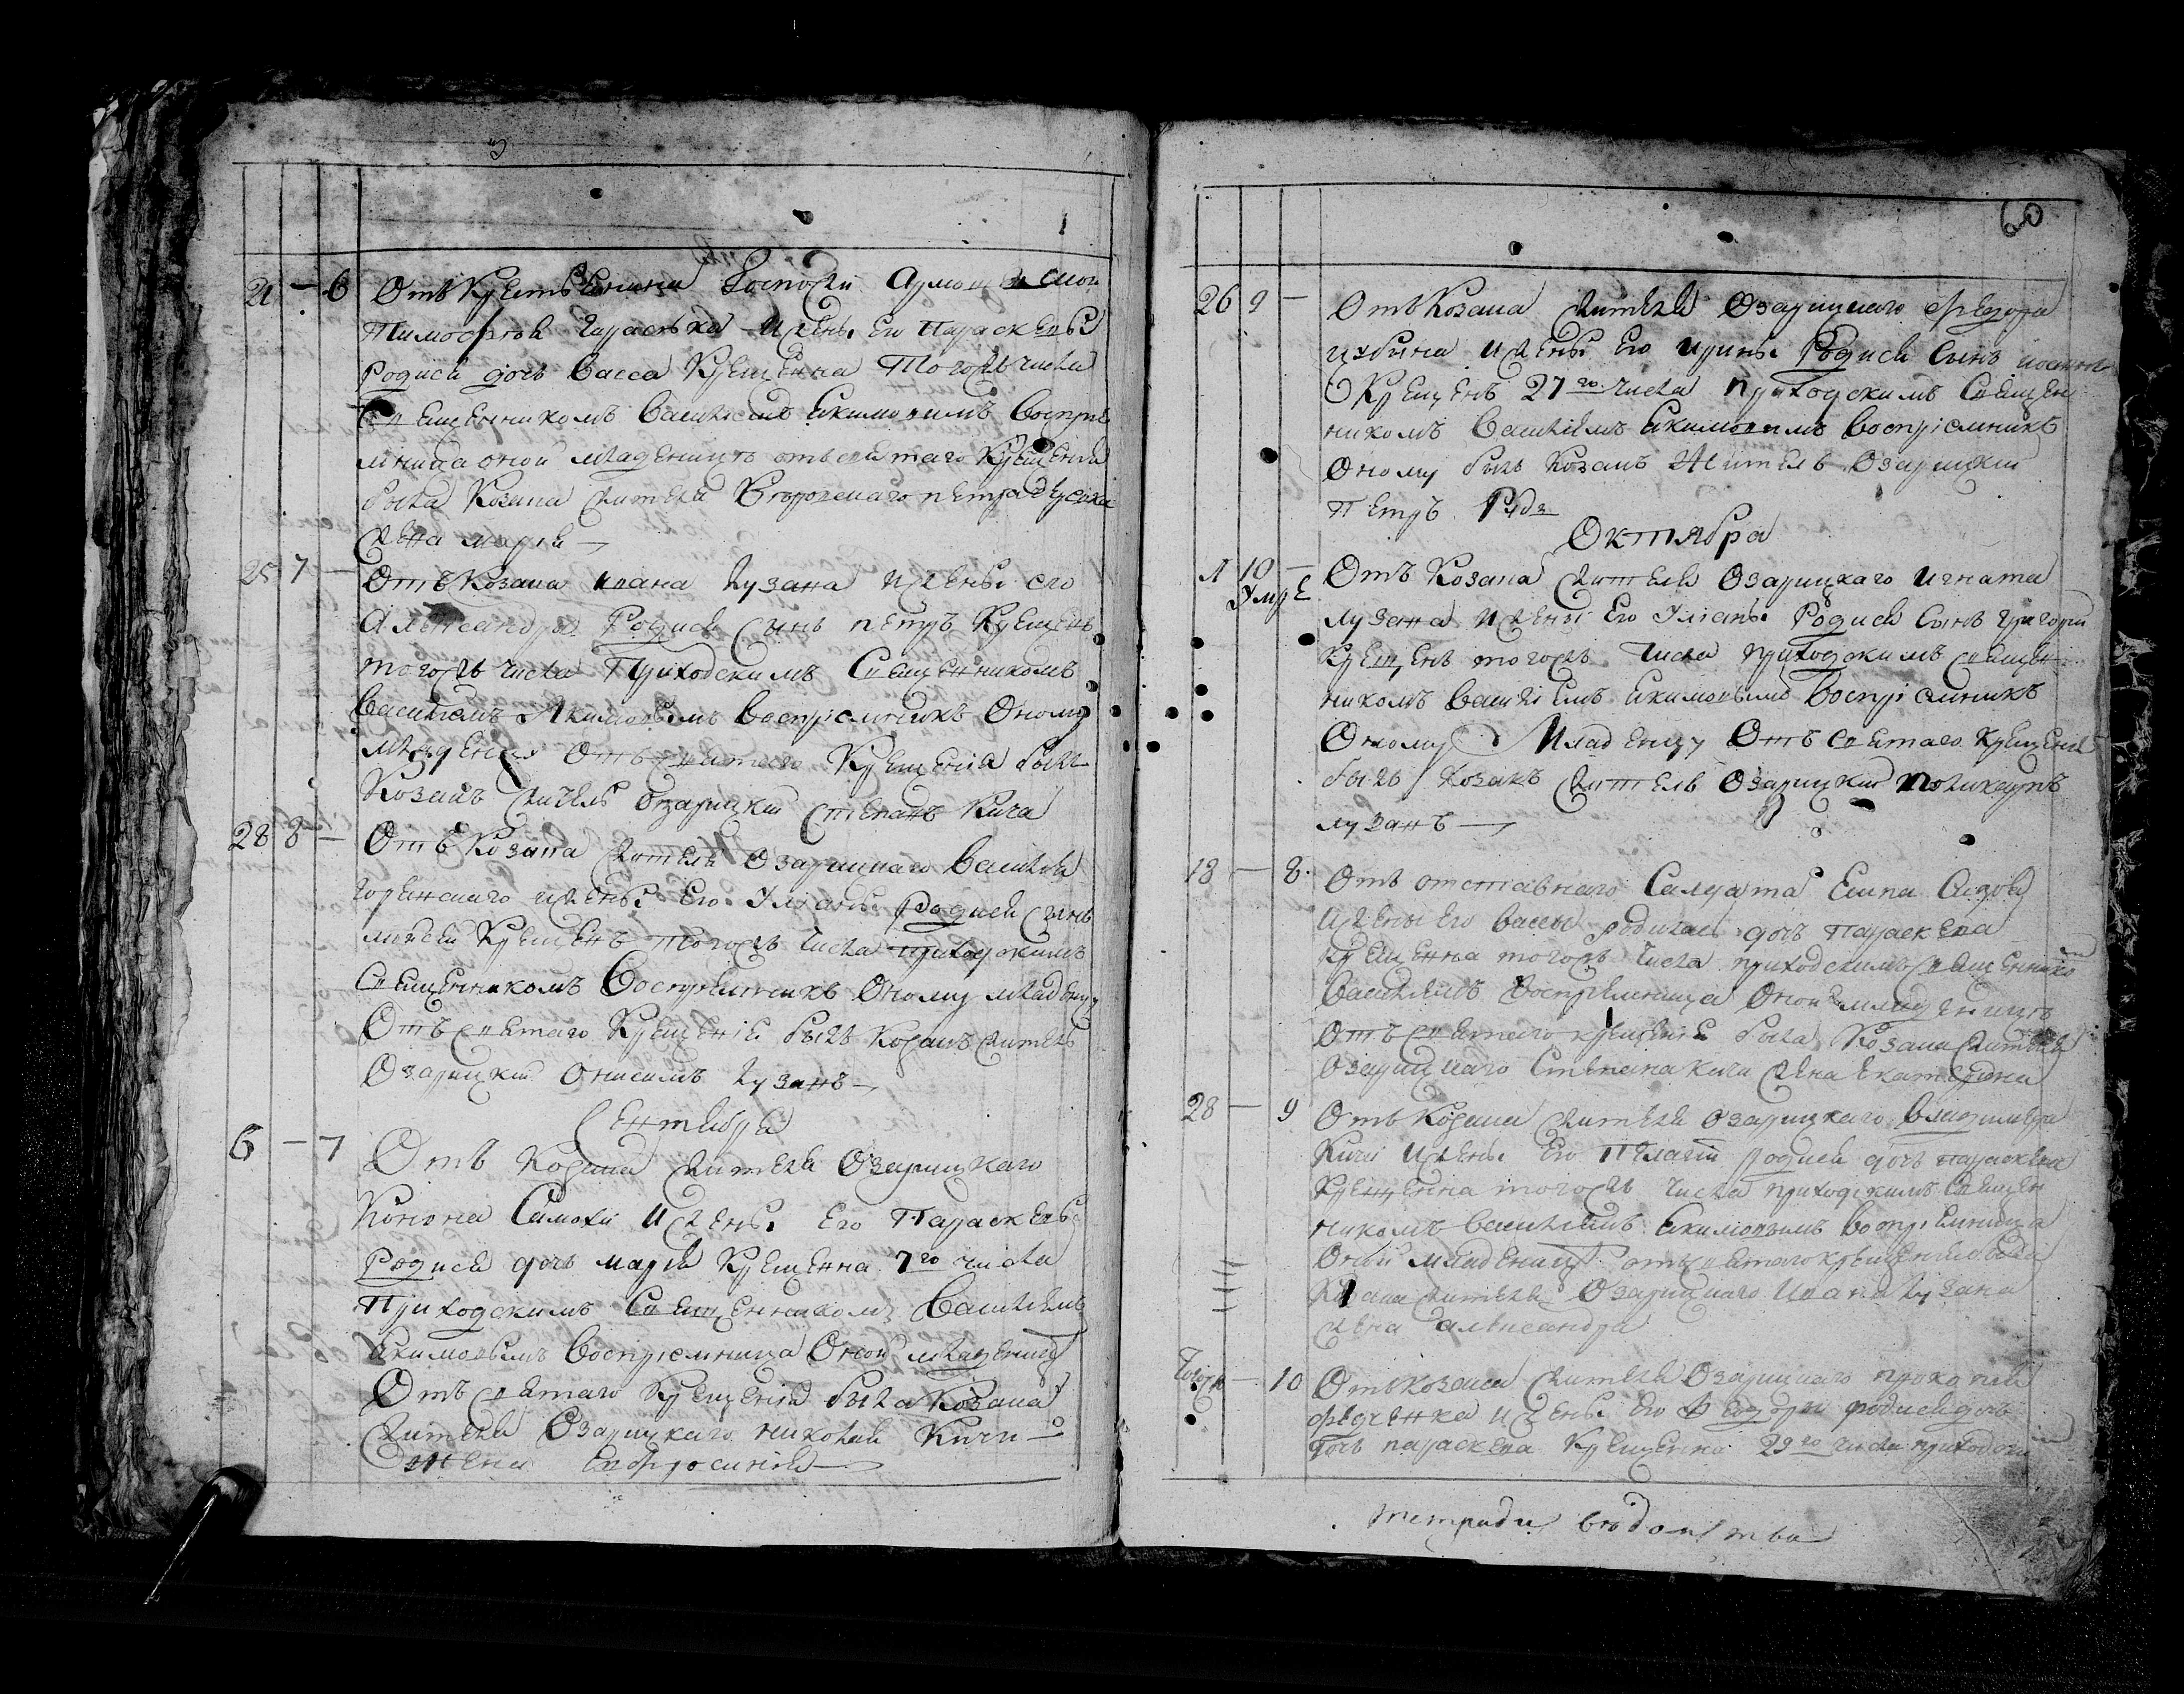 21 — 6 Отъ Крестьянина Госпожи
Тимофея Тарасенка И жены Его Параскевы
Родися дочь Васса Крещенна Тогожъ числа
Священникомъ Василиемъ Якимовимъ Восприе
мница оной младеницъ отъ святаго Крещения
была Козака жителя Петра
жена мария
25 7 — Отъ Козака Ивана Лузана И жены его
Александры Родися сынъ петръ Крещенъ
тогожъ числа Приходскимъ Священникомъ
Василиемъ Якимовымъ Восприемникъ Оному
младенцу Отъ святаго Крещения былъ
Козакъ житель Озарицкий Степанъ Кича
28 8 — Отъ Козака жителя Озарицкаго Василия
и жены Его Улианы Родися сынъ
моисей Крещенъ Тогожъ числа приходскимъ
Священникомъ Восприемникъ Оному младенцу
Отъ святаго Крещение былъ Козакъ житель
Озарицкий Онисимъ Лузанъ
Сентября
6 — 7 Отъ Козака жителя Озарицкаго
Конона Самохи И жены Его Параскевы
Родися дочь мария Крещенна 7го числа
Приходскимъ Священникомъ Василиемъ
Якимовымъ Восприемница Оной младеницъ
Отъ святаго Крещения была Козака
жителя Озарицкаго николая Кичи
жена Евфросиния
60
26 9 — Отъ Козака жителя Озарицкаго Федора
и жены Его Ирины Родися Сынъ
Крещенъ 27го числа приходскимъ Священ
никомъ Василиемъ Якимовимъ Восприемникъ
Оному былъ Козакъ Житель Озарицкий
Петръ
Октября
1 10 — Отъ Козака жителя Озарицкаго Игната
Умре
лузана И жены Его Улианы Родися Сынъ григорий
Крещенъ тогожъ числа приходскимъ священ
никомъ Василиемъ Якимовымъ Восприемникъ
Оному Младенцу Отъ святаго Крещения
былъ Козакъ житель Озарицкий Поликарпъ
лузанъ
18 — 8 Отъ отставнаго Салдата
И жены Его Вассы родилась дочь Параскева
Крещенна тогожъ числа приходскимъ священнико
Василиемъ Восприемница Оной младеницъ
Отъ святаго крещение была Козака жителя
Озарицкаго Степана Кичи жена Екатерина
28 — 9 Отъ Козака жителя Озарицкаго владимира
Кичи И жены Его Пелагии родися дочь параскева
Крещенна тогожъ числа приходскимъ Священ
никомъ Василиемъ Якимовымъ Восприемница
Оной младеницъ отъ святаго крещения была
Козака жителя Озарицкаго Ивана Лузана
жена александра
— 10 Отъ Козака жителя Озарицкаго прокопия
федченка И жены Его родися дочь
дочь параскева Крещенна 29го числа приходски